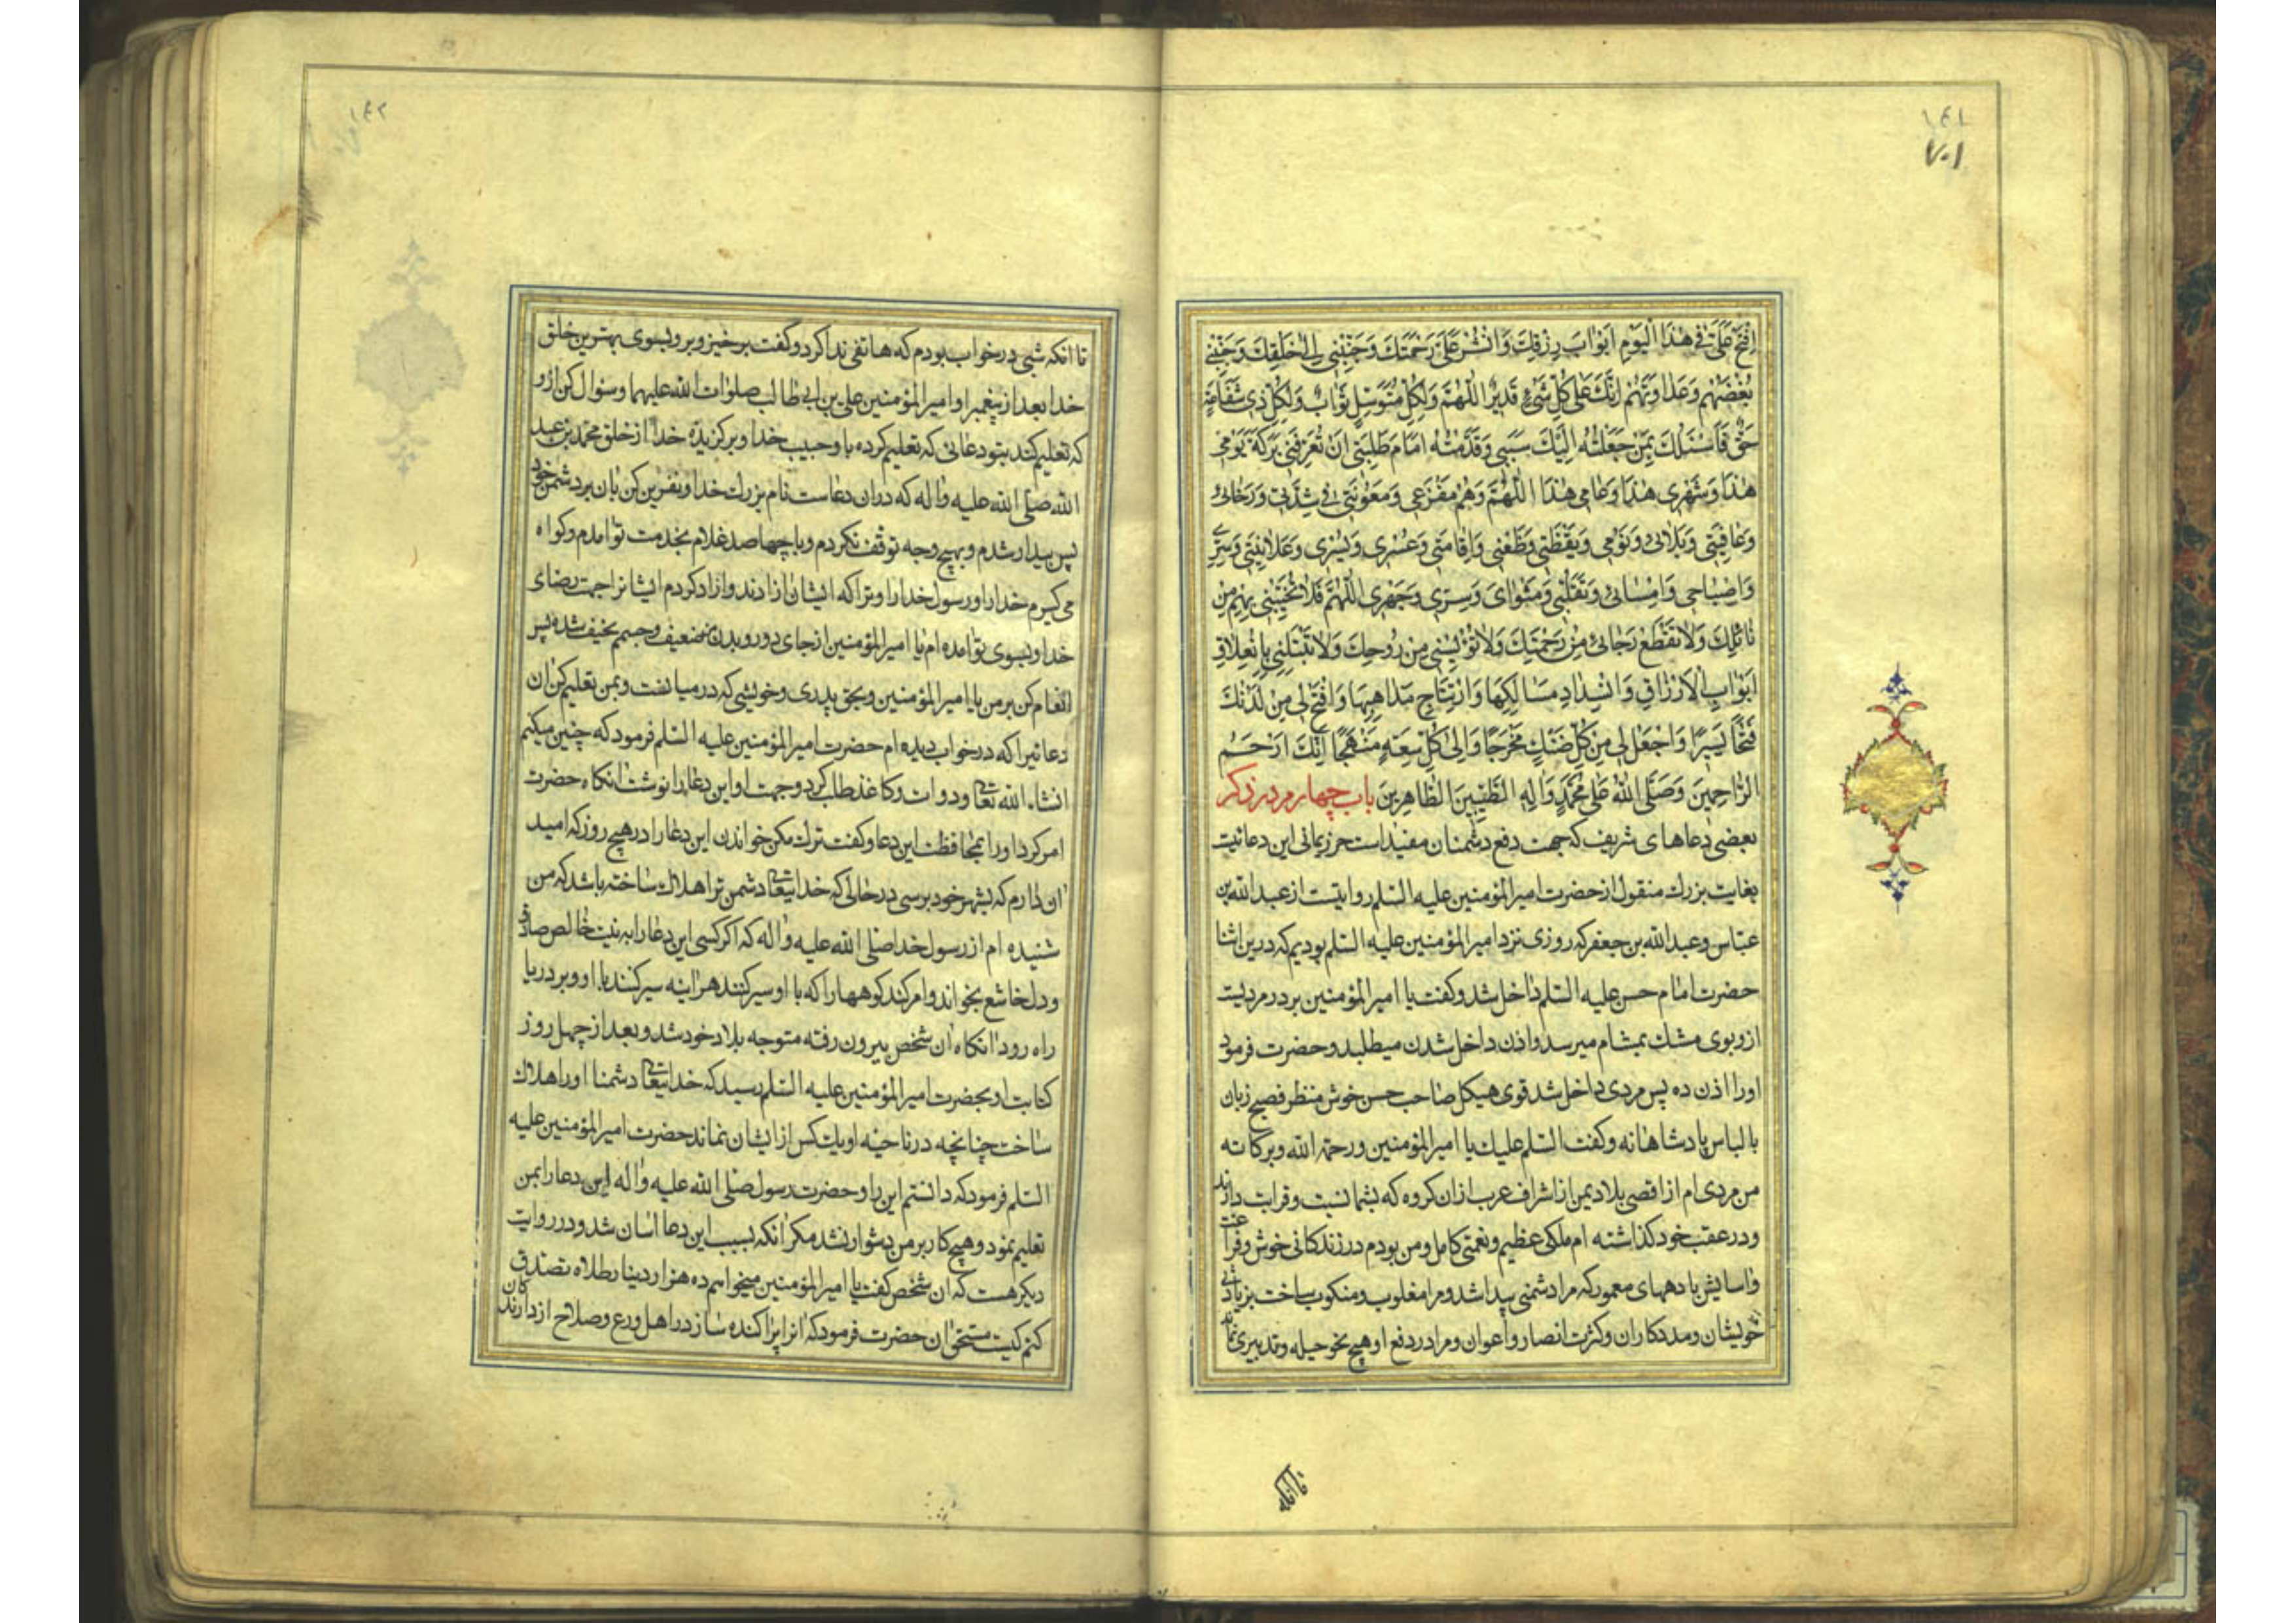 ۱۴۱
۷۰۱
اِفْتَحْ عَلَيَّ في هٰذَا الْيَوْمِ اَبْوابَ رِزْقِكَ وَانْشُرْ عَلَيَّ رَحْمَتَكَ وَحَبِّبْني اِلىٰ خَلْقِكَ وَجَنِّبْني
بُغْضَهُمْ وَعَداوَتَهُمْ اِنَّكَ عَلىٰ كُلِّ شَيْءٍ قَديرٌ اَللّٰهُمَّ وَلِكُلِّ مُتَوَسِّلٍ ثَوابٌ وَلِكُلِّ ذي شَفاعَةٍ
حَقٌّ فَاَسْئَلُكَ بِمَنْ جَعَلْتُهُ اِلَيْكَ سَبَبي وَقَدَّمْتُهُ اَمامَ طَلِبَتي اَنْ تُعَرِّفَني بَرَكَةَ يَوْمي
هٰذا وَشَهْري هٰذا وَعامي هٰذا اَللّٰهُمَّ وَهُمْ مَفْزَعي وَمَعُونَتي في شِدَّتي وَرَخائي
وَعافِيَتي وَبَلائي وَنَوْمي وَيَقْظَتي وَظَعْني وَاِقامَتي وَعُسْري وَيُسْري وَعَلانِيَتي وَسِرّي
وَاِصْباحي وَاِمْسائي وَتَقَلُّبي وَمَثْوايَ وَسِرّي وَجَهْري اَللّٰهُمَّ فَلا تُخَيِّبْني بِهِمْ مِنْ
نائِلِكَ وَلا تَقْطَعْ رَجائي مِنْ رَحْمَتِكَ وَلا تُؤْيِسْني مِنْ رَوْحِكَ وَلا تَبْتَلِني بِانْغِلاقِ
اَبْوابِ الْاَرْزاقِ وَانْسِدادِ مَسالِكِها وَارْتِتاجِ مَذاهِبِها وَافْتَحْ لي مِنْ لَدُنْكَ
فَتْحًا يَسيرًا وَاجْعَلْ لي مِنْ كُلِّ ضَنْكٍ مَخْرَجًا وَاِلىٰ كُلِّ سَعَةٍ مَنْهَجًا اِنَّكَ اَرْحَمُ
الرّاحِمينَ وَصَلَّى اللّٰهُ عَلىٰ مُحَمَّدٍ وَاٰلِهِ الطَّيِّبينَ الطّاهِرينَ باب چهارم در ذكر
بعضى دعاهاى شريف كه جهت دفع دشمنان مفيد است حرز يمانى اين دعائيست
بغايت بزرك منقول از حضرت امير المؤمنين عليه السّلم روايتست از عبد الله بن
عبّاس وعبد الله بن جعفر كه روزى نزد امير المؤمنين عليه السّلم بوديم كه درين اثنا
حضرت امام حسن عليه السّلم داخل شد وكفت يا امير المؤمنين بر در مرديست
از و بوى مشك بمشام ميرسد واذن داخل شدن ميطلبد وحضرت فرمود
او را اذن ده پس مردى داخل شد قوى هيكل صاحب حسن خوش منظر فصيح زبان
با لباس پادشاهانه وكفت السّلم عليك يا امير المؤمنين ورحمة الله وبركاته
من مردى ام از اقصى بلاد يمن از اشراف عرب از ان كروه كه بشما نسبت وقرابت دارند
ودر عقب خود كذاشته ام ملكى عظيم ونعمتى كامل ومن بودم در زندكانى خوش وفراغت
واسايش با دههاى معمور كه مرا دشمنى پيدا شد ومرا مغلوب ومنكوب ساخت بزيادتى
خويشان ومددكاران وكثرت انصار واعوان ومرا در دفع او هيچ نحو حيله وتدبيرى نماند
تا انكه
۱۴۲
تا انكه شبى در خواب بودم كه هاتفى ندا كرد وكفت برخيز وبرو بسوى بهترين خلق
خدا بعد از پيغمبر او امير المؤمنين على بن ابى طالب صلوات الله عليهما وسئوال كن از و
كه تعليم كند بتو دعائى كه تعليم كرده با و حبيب خدا وبركزيدۀ خدا از خلق محمّد بن عبد
الله صلّى الله عليه واله كه در ان دعاست نام بزرك خدا ونفرين كن بان بر دشمن خود
پس بيدار شدم وبهيچ وجه توقف نكردم وبا چهارصد غلام بخدمت تو امدم وكواه
مى كيرم خدا را ورسول خدا را وترا كه ايشان ازادند وازاد كردم ايشانرا جهت رضاى
خدا وبسوى تو امده ام يا امير المؤمنين از جاى دور وبدن ضعيف وجسم نحيف شده پس
انعام كن بر من يا امير المؤمنين وبحق پدرى وخويشى كه در ميانست وبمن تعليم كن ان
دعائيرا كه در خواب ديده ام حضرت امير المؤمنين عليه السّلم فرمود كه چنين ميكنم
انشاء الله تعالى ودوات وكاغذ طلب كرد وجهت او اين دعا را نوشت انكاه حضرت
امر كرد او را بمحافظت اين دعا وكفت ترك مكن خواندن اين دعا را در هيچ روز كه اميد
ان دارم كه بشهر خود برسى در حالى كه خدايتعالى دشمن ترا هلاك ساخته باشد كه من
شنيده ام از رسول خدا صلّى الله عليه واله كه اكر كسى اين دعا را به نيت خالص صادق
ودل خاشع بخواند وامر كند كوهها را كه با او سير كنند هراينه سير كنند با او وبر دريا
راه رود انكاه ان شخص بيرون رفته متوجه بلاد خود شد وبعد از چهل روز
كتابت او بحضرت امير المؤمنين عليه السّلم رسيد كه خدايتعالى دشمنا او را هلاك
ساخت چنانچه در ناحيۀ او يك كس از ايشان نماند حضرت امير المؤمنين عليه
السّلم فرمود كه دانستم اين را وحضرت رسول صلّى الله عليه واله اين دعا را بمن
تعليم نمود وهيچ كار بر من دشوار نشد مكر انكه بسبب اين دعا اسان شد ودر روايت
ديكر هست كه ان شخص كفت يا امير المؤمنين ميخواهم ده هزار دينار طلاه تصدق
كنم كيست مستحق ان حضرت فرمود كه انرا پراكنده ساز در اهل ورع وصلاح از